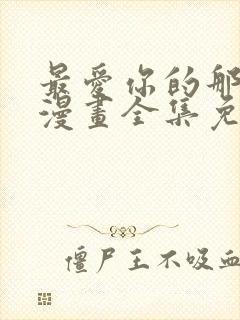 最愛你的那
漫畫全集免
僵尸王不吸血